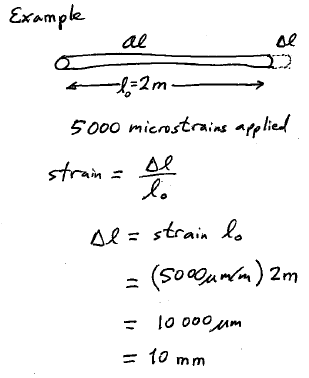 Example
al Δl
l₀=2m
5000 microstrains applied
strain = Δl / l₀
Δl = strain l₀
= (5000μm/m) 2m
= 10 000 μm
= 10 mm